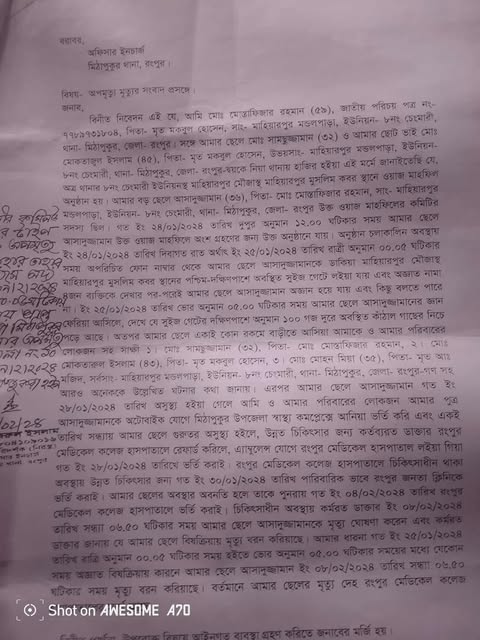 বরাবর,
অফিসার ইনচার্জ
মিঠাপুকুর থানা, রংপুর।
বিষয়- অপমৃত্যু মৃত্যুর সংবাদ প্রসঙ্গে।
জনাব,
বিনীত নিবেদন এই যে, আমি মোঃ মোস্তাফিজার রহমান (৫৯), জাতীয় পরিচয় পত্র নং-
৭৭৮৯৭৩১৮০৪, পিতা- মৃত মকবুল হোসেন, সাং- মাহিয়ারপুর মন্ডলপাড়া, ইউনিয়ন- ৮নং চেংমারী,
থানা- মিঠাপুকুর, জেলা- রংপুর। সঙ্গে আমার ছেলে মোঃ সামছুজ্জামান (৩২) ও আমার ছোট ভাই মোঃ
মোকতারুল ইসলাম (৪৫), পিতা- মৃত মকবুল হোসেন, উভয়সাং- মাহিয়ারপুর মন্ডলপাড়া, ইউনিয়ন-
৮নং চেংমারী, থানা- মিঠাপুকুর, জেলা- রংপুর-দ্বয়কে নিয়া থানায় হাজির হইয়া এই মর্মে জানাইতেছি যে,
অত্র থানার ৮নং চেংমারী ইউনিয়নস্থ মাহিয়ারপুর মৌজাস্থ মাহিয়ারপুর মুসলিম কবর স্থানে ওয়াজ মাহফিল
অনুষ্ঠান হয়। আমার বড় ছেলে আসাদুজ্জামান (৩৬), পিতা- মোঃ মোস্তাফিজার রহমান, সাং- মাহিয়ারপুর
মন্ডলপাড়া, ইউনিয়ন- ৮নং চেংমারী, থানা- মিঠাপুকুর, জেলা- রংপুর উক্ত ওয়াজ মাহফিলের কমিটির
সদস্য ছিল। গত ইং ২৪/০১/২০২৪ তারিখ দুপুর অনুমান ১২.০০ ঘটিকার সময় আমার ছেলে
আসাদুজ্জামান উক্ত ওয়াজ মাহফিলে অংশ গ্রহণের জন্য উক্ত অনুষ্ঠানে যায়। অনুষ্ঠান চলাকালিন অবস্থায়
ইং ২৪/০১/২০২৪ তারিখ দিবাগত রাত অর্থাৎ ইং ২৫/০১/২০২৪ তারিখ রাত্রী অনুমান ০০.০৫ ঘটিকার
সময় অপরিচিত ফোন নাম্বার থেকে আমার ছেলে আসাদুজ্জামানকে ডাকিয়া মাহিয়ারপুর মৌজাস্থ
মাহিয়ারপুর মুসলিম কবর স্থানের পশ্চিম-দক্ষিণপাশে অবস্থিত সুইজ গেটে লইয়া যায় এবং অজ্ঞাত নামা
জন ব্যক্তিকে দেখার পর-পরেই আমার ছেলে আসাদুজ্জামান অজ্ঞান হয়ে যায় এবং কিছু বলতে পারে
না। ইং ২৫/০১/২০২৪ তারিখ ভোর অনুমান ০৫.০০ ঘটিকার সময় আমার ছেলে আসাদুজ্জামানের জ্ঞান
ফেরিয়া আসিলে, দেখে যে সুইজ গেটের দক্ষিণপাশে অনুমান ১০০ গজ দূরে অবস্থিত কাঁঠাল গাছের নিচে
পড়ে আছে। অতপর আমার ছেলে একাই কোন রকমে বাড়ীতে আসিয়া আমাকে ও আমার পরিবারের
লোকজন সহ সাক্ষী ১। মোঃ সামছুজ্জামান (৩২), পিতা- মোঃ মোস্তাফিজার রহমান, ২। মোঃ
মোকতারুল ইসলাম (৪৩), পিতা- মৃত মকবুল হোসেন, ৩। মোঃ মোহন মিয়া (৩৫), পিতা- মৃত আঃ
মজিদ, সর্বসাং- মাহিয়ারপুর মন্ডলপাড়া, ইউনিয়ন- ৮নং চেংমারী, থানা- মিঠাপুকুর, জেলা- রংপুর-গণ সহ
আরও অনেককে উল্লেখিত ঘটনার কথা জানায়। এরপর আমার ছেলে আসাদুজ্জামান গত ইং
২৮/০১/২০২৪ তারিখ অসুস্থ হইয়া গেলে আমি ও আমার পরিবারের লোকজন আমার পুত্র
আসাদুজ্জামানকে অটোবাইক যোগে মিঠাপুকুর উপজেলা স্বাস্থ্য কমপ্লেক্সে আনিয়া ভর্তি করি এবং একই
তারিখ সন্ধ্যায় আমার ছেলে গুরুতর অসুস্থ হইলে, উন্নত চিকিৎসার জন্য কর্তব্যরত ডাক্তার রংপুর
মেডিকেল কলেজ হাসপাতালে রেফার্ড করিলে, এ্যাম্বুলেন্স যোগে রংপুর মেডিকেল হাসপাতাল লইয়া গিয়া
গত ইং ২৮/০১/২০২৪ তারিখে ভর্তি করাই। রংপুর মেডিকেল কলেজ হাসপাতালে চিকিৎসাধীন থাকা
অবস্থায় উন্নত চিকিৎসার জন্য গত ইং ৩০/০১/২০২৪ তারিখ পারিবারিক ভাবে রংপুর জনতা ক্লিনিকে
ভর্তি করাই। আমার ছেলের অবস্থার অবনতি হলে তাকে পুনরায় গত ইং ০৪/০২/২০২৪ তারিখ রংপুর
মেডিকেল কলেজ হাসপাতালে ভর্তি করাই। চিকিৎসাধীন অবস্থায় কর্মরত ডাক্তার ইং ০৮/০২/২০২৪
তারিখ সন্ধ্যা ০৬.৫০ ঘটিকার সময় আমার ছেলে আসাদুজ্জামানকে মৃত্যু ঘোষণা করেন এবং কর্মরত
ডাক্তার জানায় যে আমার ছেলে বিষক্রিয়ায় মৃত্যু বরন করিয়াছে। আমার ধারনা গত ইং ২৫/০১/২০২৪
তারিখ রাত্রি অনুমান ০০.০৫ ঘটিকার সময় হইতে ভোর অনুমান ০৫.০০ ঘটিকার সময়ের মধ্যে যেকোন
সময় অজ্ঞাত বিষক্রিয়ার কারনে আমার ছেলে আসাদুজ্জামান ইং ০৮/০২/২০২৪ তারিখ সন্ধ্যা ০৬.৫০
ঘটিকার সময় মৃত্যু বরন করিয়াছে। বর্তমানে আমার ছেলের মৃত্যু দেহ রংপুর মেডিকেল কলেজ
উপরোক্ত বিষয়ে আইনগত ব্যবস্থা গ্রহণ করিতে জনাবের মর্জি হয়।
Shot on AWESOME A70